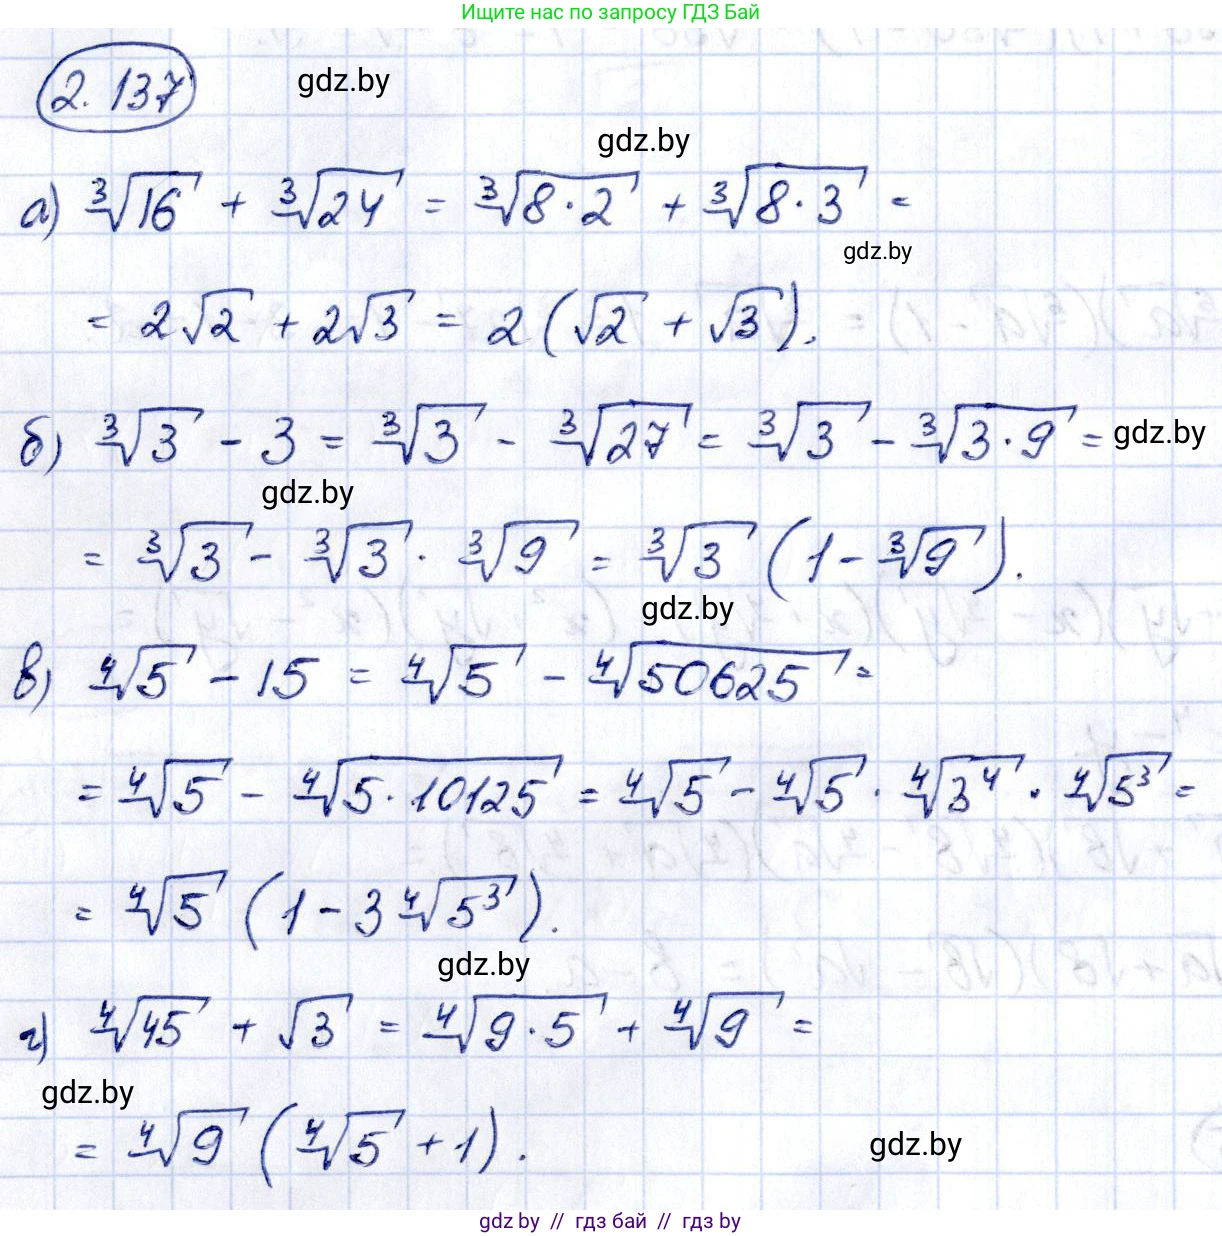 Ищите нас по запросу ГДЗ Бай
2.137
gdz.by
gdz.by
а) ∛16 + ∛24 = ∛8·2 + ∛8·3 =
gdz.by
= 2√2 + 2√3 = 2(√2 + √3).
б) ∛3 - 3 = ∛3 - ∛27 = ∛3 - ∛3·9 = gdz.by
gdz.by
= ∛3 - ∛3 · ∛9 = ∛3 (1 - ∛9).
gdz.by
в) ∜5 - 15 = ∜5 - ∜50625 =
= ∜5 - ∜5·10125 = ∜5 - ∜5 · ∜3⁴ · ∜5³ =
= ∜5 (1 - 3∜5³).
gdz.by
г) ∜45 + √3 = ∜9·5 + ∜9 =
gdz.by
= ∜9 (∜5 + 1).
gdz.by
gdz.by // гдз бай // гдз by